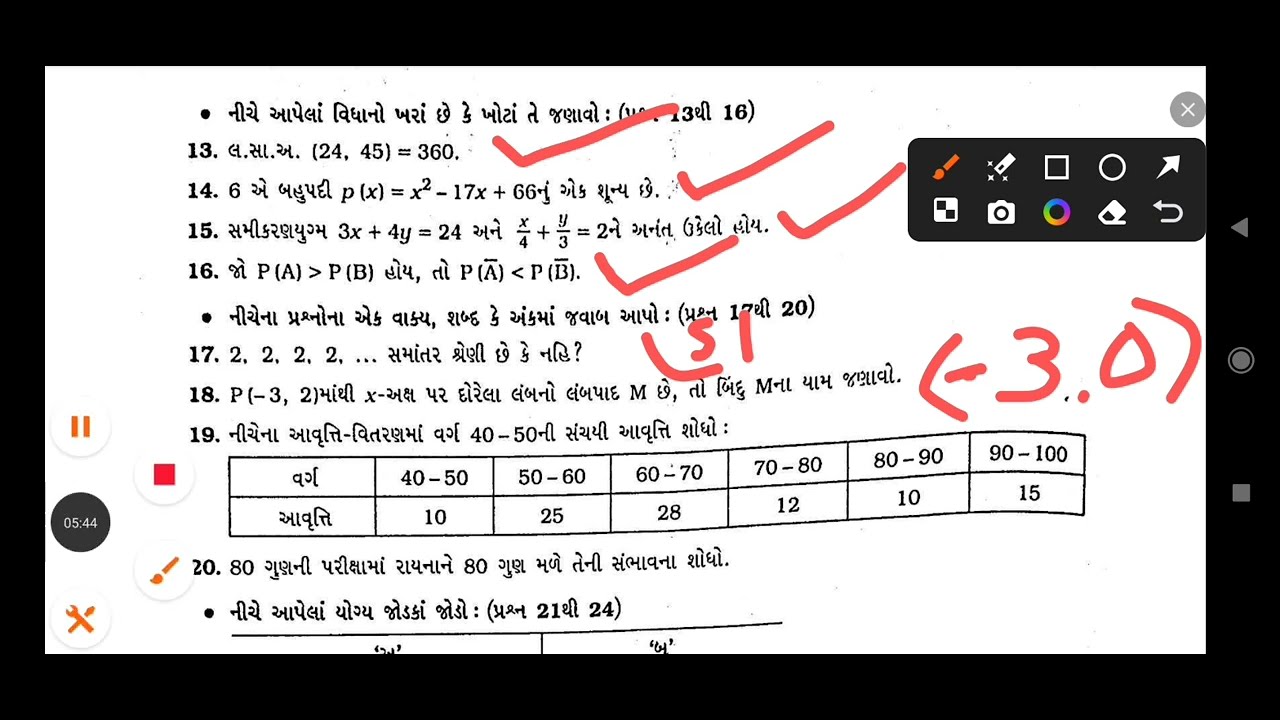 • નીચે આપેલાં વિધાનો ખરાં છે કે ખોટાં તે જણાવો : (પ્રશ્ન 13થી 16)
13. લ.સા.અ. (24, 45) = 360.
14. 6 એ બહુપદી p (x) = x² – 17x + 66નું એક શૂન્ય છે.
15. સમીકરણયુગ્મ 3x + 4y = 24 અને x/4 + y/3 = 2ને અનંત ઉકેલો હોય.
16. જો P (A) > P (B) હોય, તો P (A̅) < P (B̅).
• નીચેના પ્રશ્નોના એક વાક્ય, શબ્દ કે અંકમાં જવાબ આપો : (પ્રશ્ન 17થી 20)
17. 2, 2, 2, 2, ... સમાંતર શ્રેણી છે કે નહિ?
18. P (– 3, 2)માંથી x-અક્ષ પર દોરેલા લંબનો લંબપાદ M છે, તો બિંદુ Mના યામ જણાવો.
(-3.0)
19. નીચેના આવૃત્તિ-વિતરણમાં વર્ગ 40 – 50ની સંચયી આવૃત્તિ શોધો :
વર્ગ 40 – 50 50 – 60 60 – 70 70 – 80 80 – 90 90 – 100
આવૃત્તિ 10 25 28 12 10 15
20. 80 ગુણની પરીક્ષામાં રાયનાને 80 ગુણ મળે તેની સંભાવના શોધો.
• નીચે આપેલાં યોગ્ય જોડકાં જોડો : (પ્રશ્ન 21થી 24)
‘અ’ ‘બ’
05:44